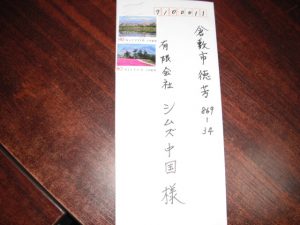 7100011
倉敷市徳芳
869-34
有限会社
シムズ中国様